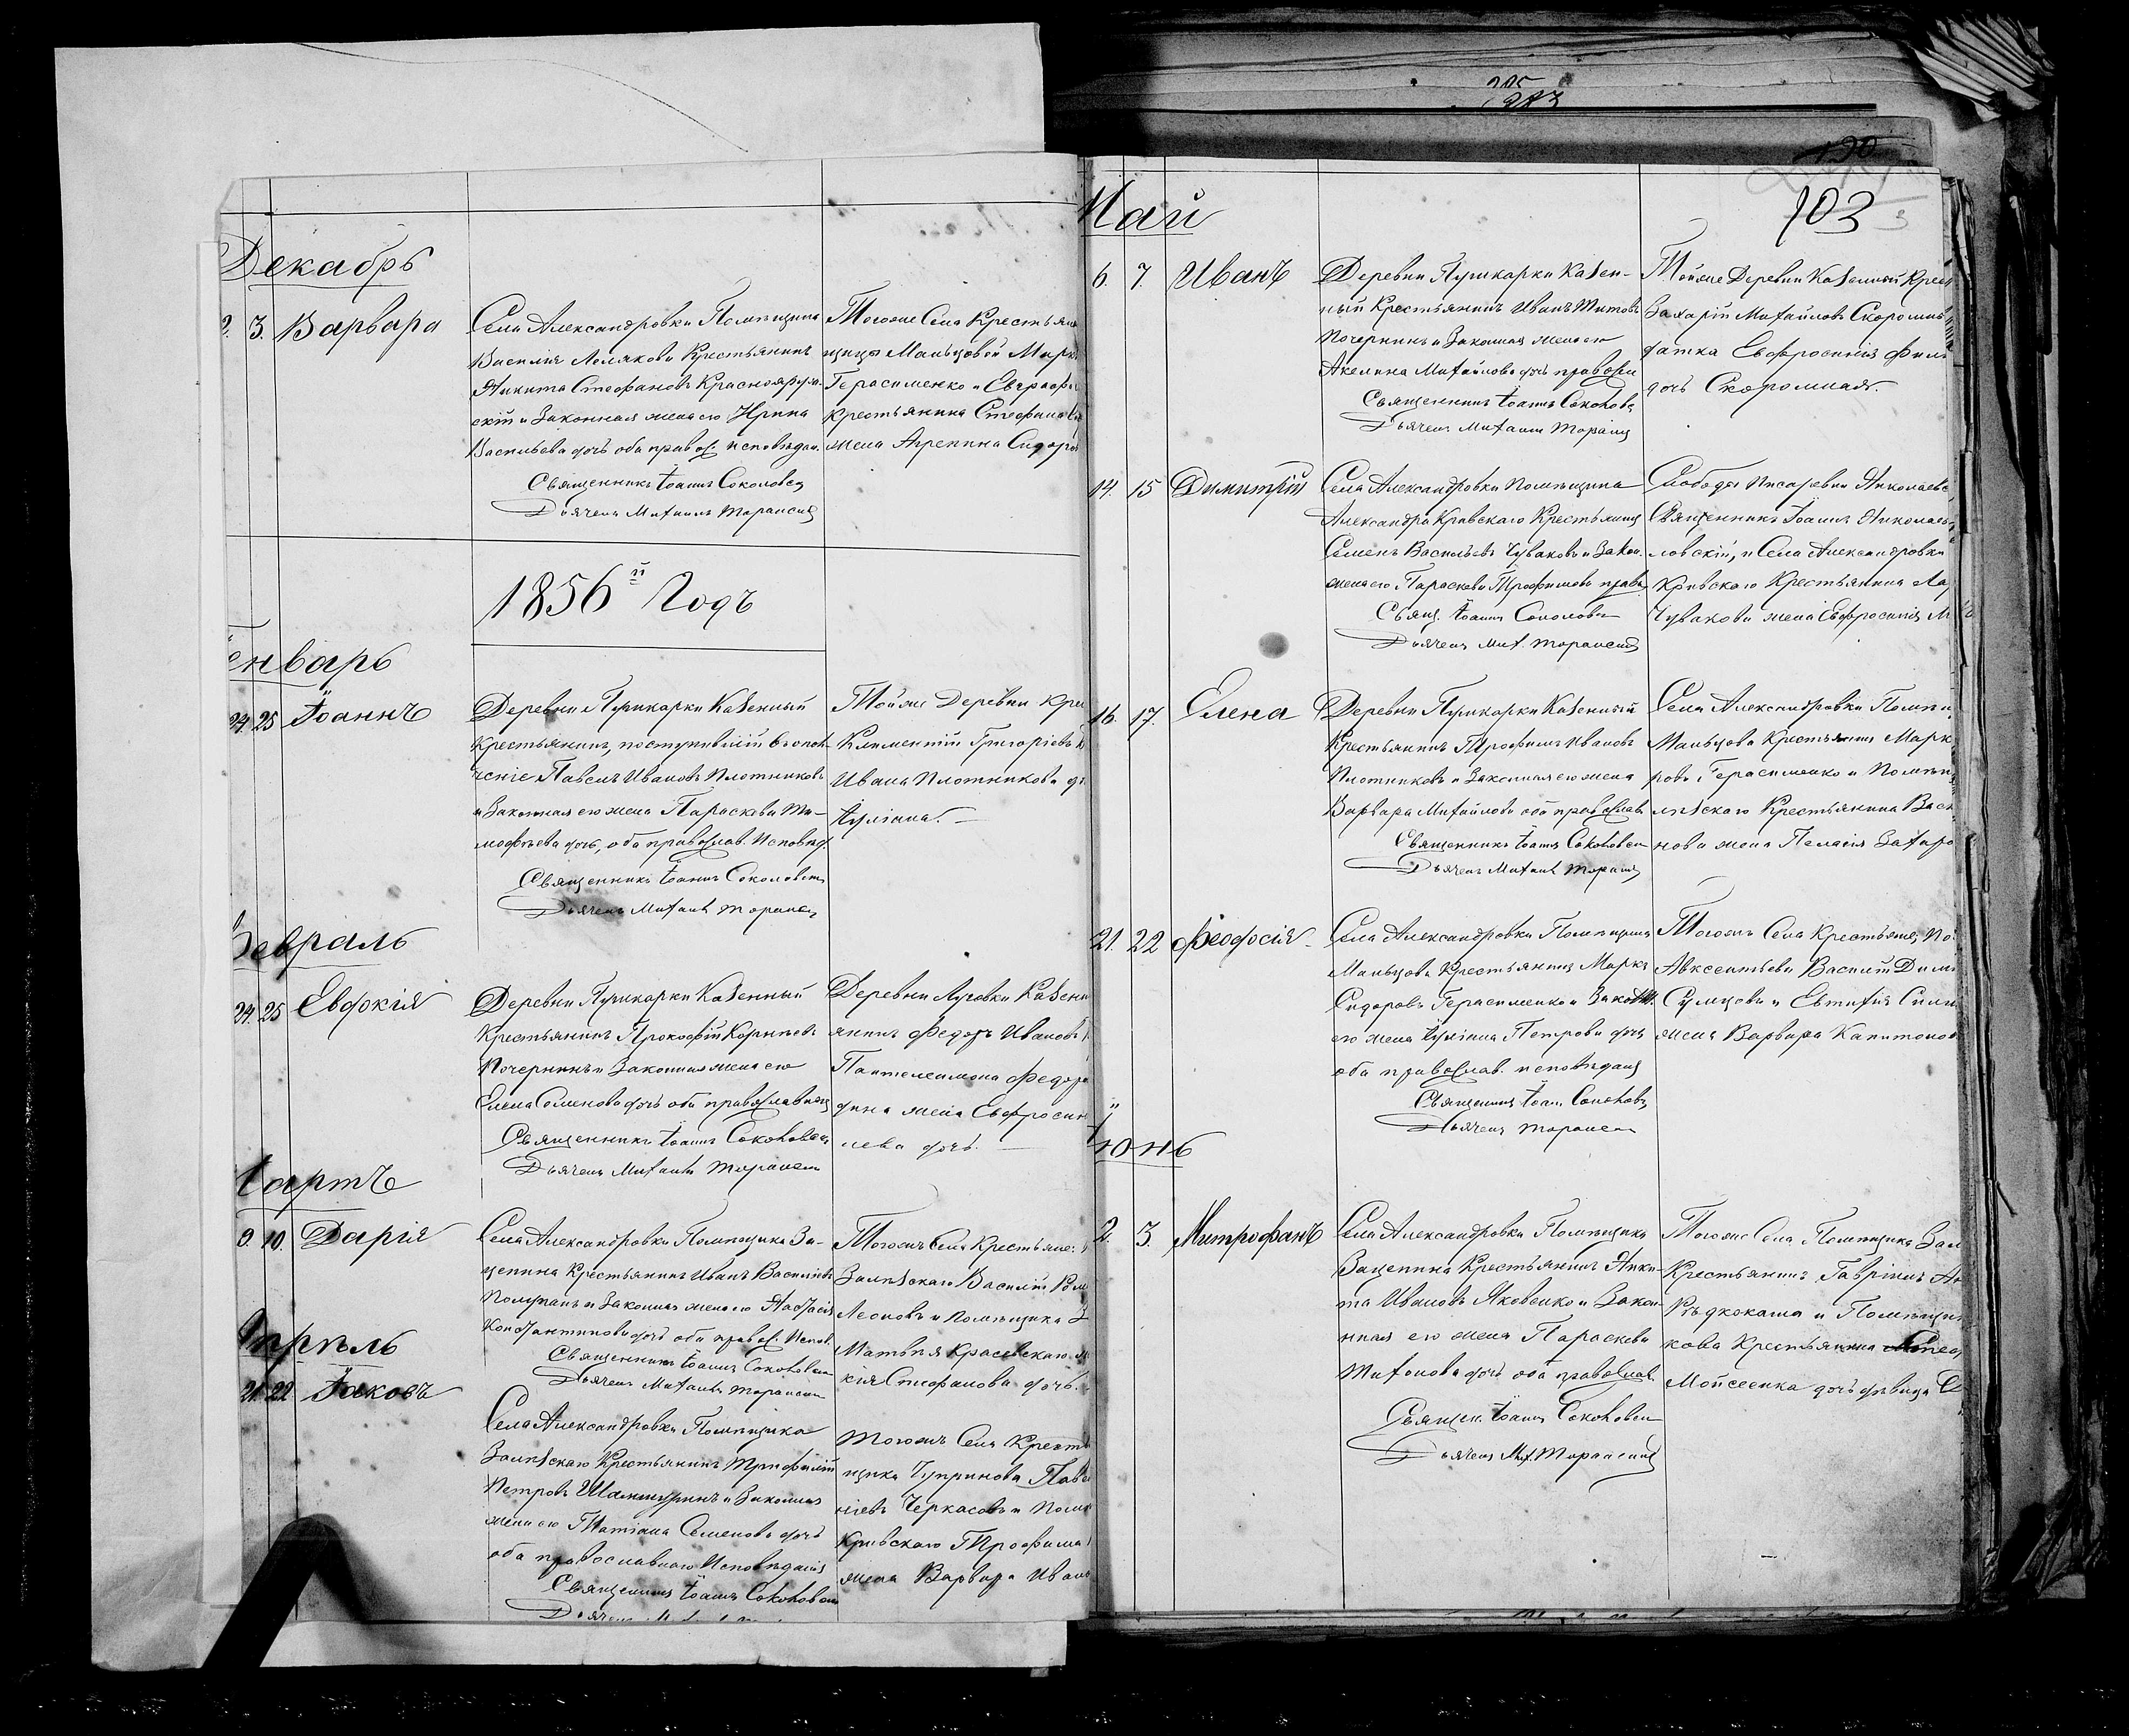 Декабрь
2. 3. Варвара
Села Александровки Помѣщика
Василія Полякова Крестьянинъ
Никита Стефановъ Краснояруж-
скій и Законная жена его Ирина
Васильева дочь оба правосл. исповѣдан.
Священникъ Іоаннъ Соколовск
Дьячекъ Михаилъ Торанск
Тогоже Села Крестьяне
щицы Мальцовой Марк
Герасименко и Евграфа
крестьянина Стефана
жена Агрепина Сидоро
1856й Годъ
Январь
24. 25 Іоаннъ
Деревни Пушкарки Казенный
Крестьянинъ, поступившій въ опол-
ченіе Павелъ Ивановъ Плотниковъ
и Законная его жена Параскева Ти-
мофѣева дочь, оба православ. Исповѣд.
Священникъ Іоаннъ Соколовск
Дьячекъ Михаилъ Торанск
Тойже Деревни Кре
Климентій Григоріевъ
Ивана Плотникова
Іуліана.
Февраль
24. 25 Евдокія
Деревни Пушкарки Казенный
Крестьянинъ Прокофій Корнѣевъ
Почернинъ и Законная жена его
Елена Семенова дочь оба православн
Священникъ Іоаннъ Соколовск
Дьячекъ Михаилъ Торанск
Деревни Луговки Казен
янинъ Федоръ Ивановъ
Пантелеимона Федоро
дина жена Евфросин
лева дочь.
Мартъ
9. 10. Дарія
Села Александровки Помѣщика За-
щепина Крестьянинъ Иванъ Василіевъ
и Законная жена его Настасія
Константинова дочь оба правос. Испов.
Священникъ Іоаннъ Соколовск
Дьячекъ Михаилъ Торанск
Тогожъ Села Крестьяне:
Залѣскаго Василій Ром
Леоновъ и Помѣщика З
Матвѣя Красевскаго
кія Стефанова дочь.
Апрѣль
21. 22 Іаковъ
Села Александровки Помѣщика
Залѣскаго Крестьянинъ Трифилій
Петровъ Шаншуринъ и Законная
жена его Татіана Семенова дочь
оба православнаго Исповѣданія
Священникъ Іоаннъ Соколовск
Тогожъ Села Кресть
щика Чупринова Паве
ніевъ Черкасовъ и Помѣ
Кривскаго Трофима
жена Варвара Иван
103
Май
6. 7. Иванъ
Деревни Пушкарки Казен-
ный Крестьянинъ Иванъ Титовъ
Почернинъ и Законная жена его
Акелина Михайлова дочь правосл
Священникъ Іоаннъ Соколовск
Дьячекъ Михаилъ Торанск
Тойже Деревни Казенный Крест
Захарій Михайловъ Скоромн
датка Евфросинія Фили
дочь Скоромная.
14. 15 Димитрій
Села Александровки Помѣщика
Александра Кривскаго Крестьянинъ
Семенъ Васильевъ Чуваковъ и Закон.
жена его Параскева Трофимова правос
Свящ. Іоаннъ Соколовск
Дьячекъ Мих. Торанскій
Слободы Писаревки Николаевс
Священникъ Іоаннъ Николаевъ
ловскій, и Села Александровки
Кривскаго Крестьянина Ла
Чувакова жена Евфросинія М
16. 17. Елена
Деревни Пушкарки Казенный
Крестьянинъ Трофимъ Ивановъ
Плотниковъ и Законная его жена
Варвара Михайлова оба православ
Священникъ Іоаннъ Соколовск
Дьячекъ Михаилъ Торанск
Села Александровки Помѣщ
Мальцова Крестьянинъ Марк
ровъ Герасименко и Помѣщ
лѣскаго Крестьянина Васи
нова жена Пелагія Захаро
21. 22 Феодосія
Села Александровки Помѣщика
Мальцова Крестьянинъ Марка
Сидоровъ Герасименко и Законн.
его жена Іуліана Петрова дочь
оба православ. исповѣданія
Священникъ Іоан. Соколовск
Дьячекъ Торанск
Тогожъ Села Крестьяне, По
Авксентьева Василій Дими
Сумцова и Евтихія Сили
жена Варвара Капитонов
Іюнь
2. 3. Митрофанъ
Села Александровки Помѣщика
Защепина Крестьянинъ Ники-
та Ивановъ Яковенко и Закон-
ная его жена Параскева
Тихонова дочь оба православ
Священ. Іоаннъ Соколовск
Дьячекъ Мих. Торанскій
Тогоже Села Помѣщика Зал
Крестьянинъ Гавріилъ
Рѣдкокаша и Помѣщи
кова Крестьянина Стеф
Мойсеенка дочь дѣвица